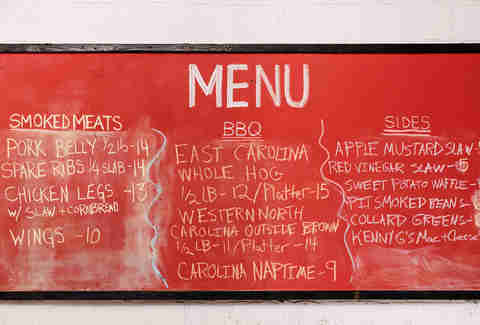 MENU
SMOKED MEATS
PORK BELLY 1/2 lb - 14
SPARE RIBS 1/4 SLAB - 14
CHICKEN LEGS - 13
W/ SLAW + CORNBREAD
WINGS - 10
BBQ
EAST CAROLINA
WHOLE HOG
1/2 LB - 12 / Platter - 15
WESTERN NORTH
CAROLINA OUTSIDE BROWN
1/2 LB - 11 / Platter - 14
CAROLINA NAPTIME - 9
SIDES
APPLE MUSTARD SLAW -
RED VINEGAR SLAW - 5
SWEET POTATO WAFFLE -
PIT SMOKED BEANS -
COLLARD GREENS -
KENNY G'S Mac + Cheese